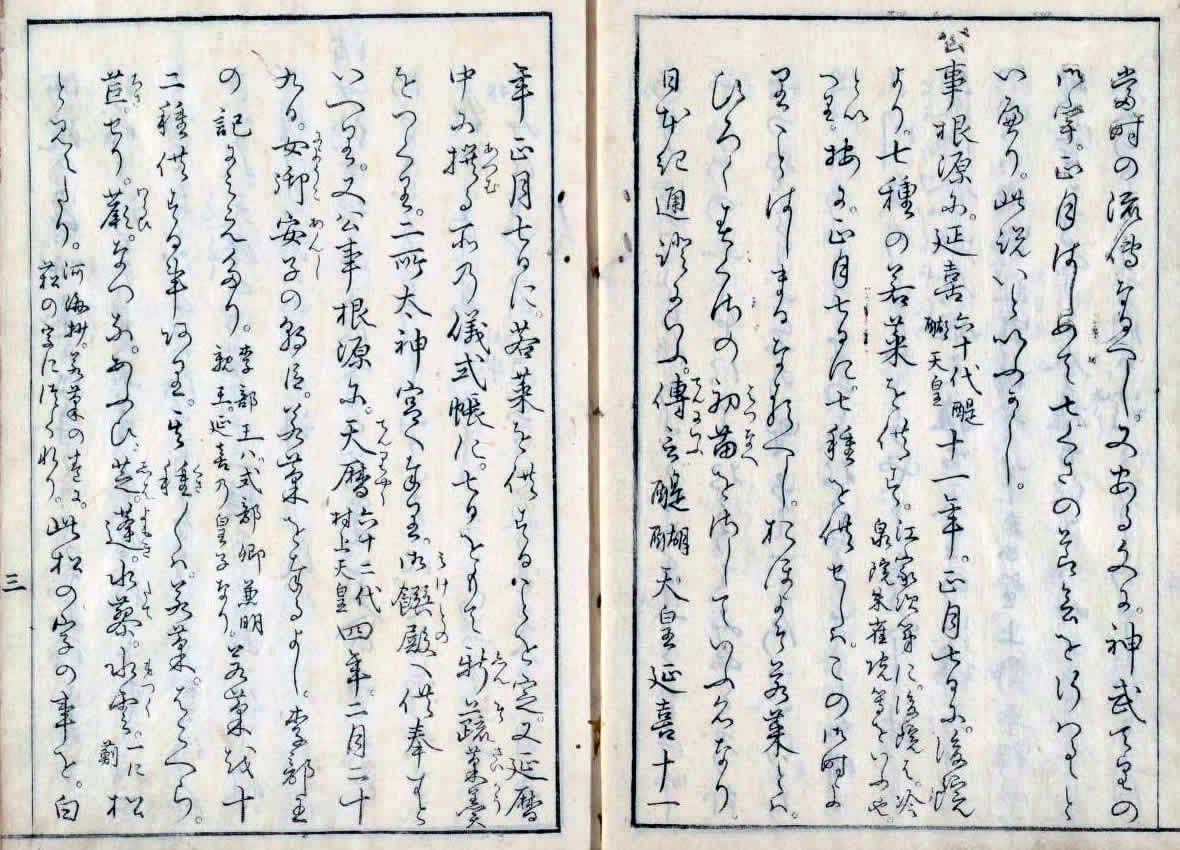 當時の流傳なるべし。又ある文に。神武天皇の
御宇。正月はじめて七くさの節会を行はると
いへり。此説いといふかし。
公事根源に。延喜六十代醍醐天皇十一年。正月七日に。後院
より。七種の若菜を供す。江家次第に。後院は。冷泉院朱雀院等をいふ也。
といへり。按に。正月七日に。七種を供せしは。この御時よ
りことはじまるなるべし。おほよそ若菜とは
ひろく春くさの初苗をさしていふ名なり。
日本紀通證にいふ。傳言醍醐天皇延喜十一
年正月七日に。若菜を供することを定。又延暦
中に撰る所乃儀式帳に。七日をもて新蔬菜羹
をつくり。二所太神宮へ奉り。御饌殿へ供奉すと
いへり。又公事根源に。天暦六十二代村上天皇四年。二月二十
九日。女御安子の朝臣。若菜を奉るよし。李部王
の記に見えたり。李部王ハ。式部卿重明親王。延喜乃皇子なり。若菜に十
二種供する事あり。其種々は。若菜。はこべら。
苣。せり。蕨。なづな。あふひ。芝。蓬。水蓼。水雲。一に薊松
と見えたり。河海抄。若菜の巻に。菘の字につくれり。此松の字の事を。白
三